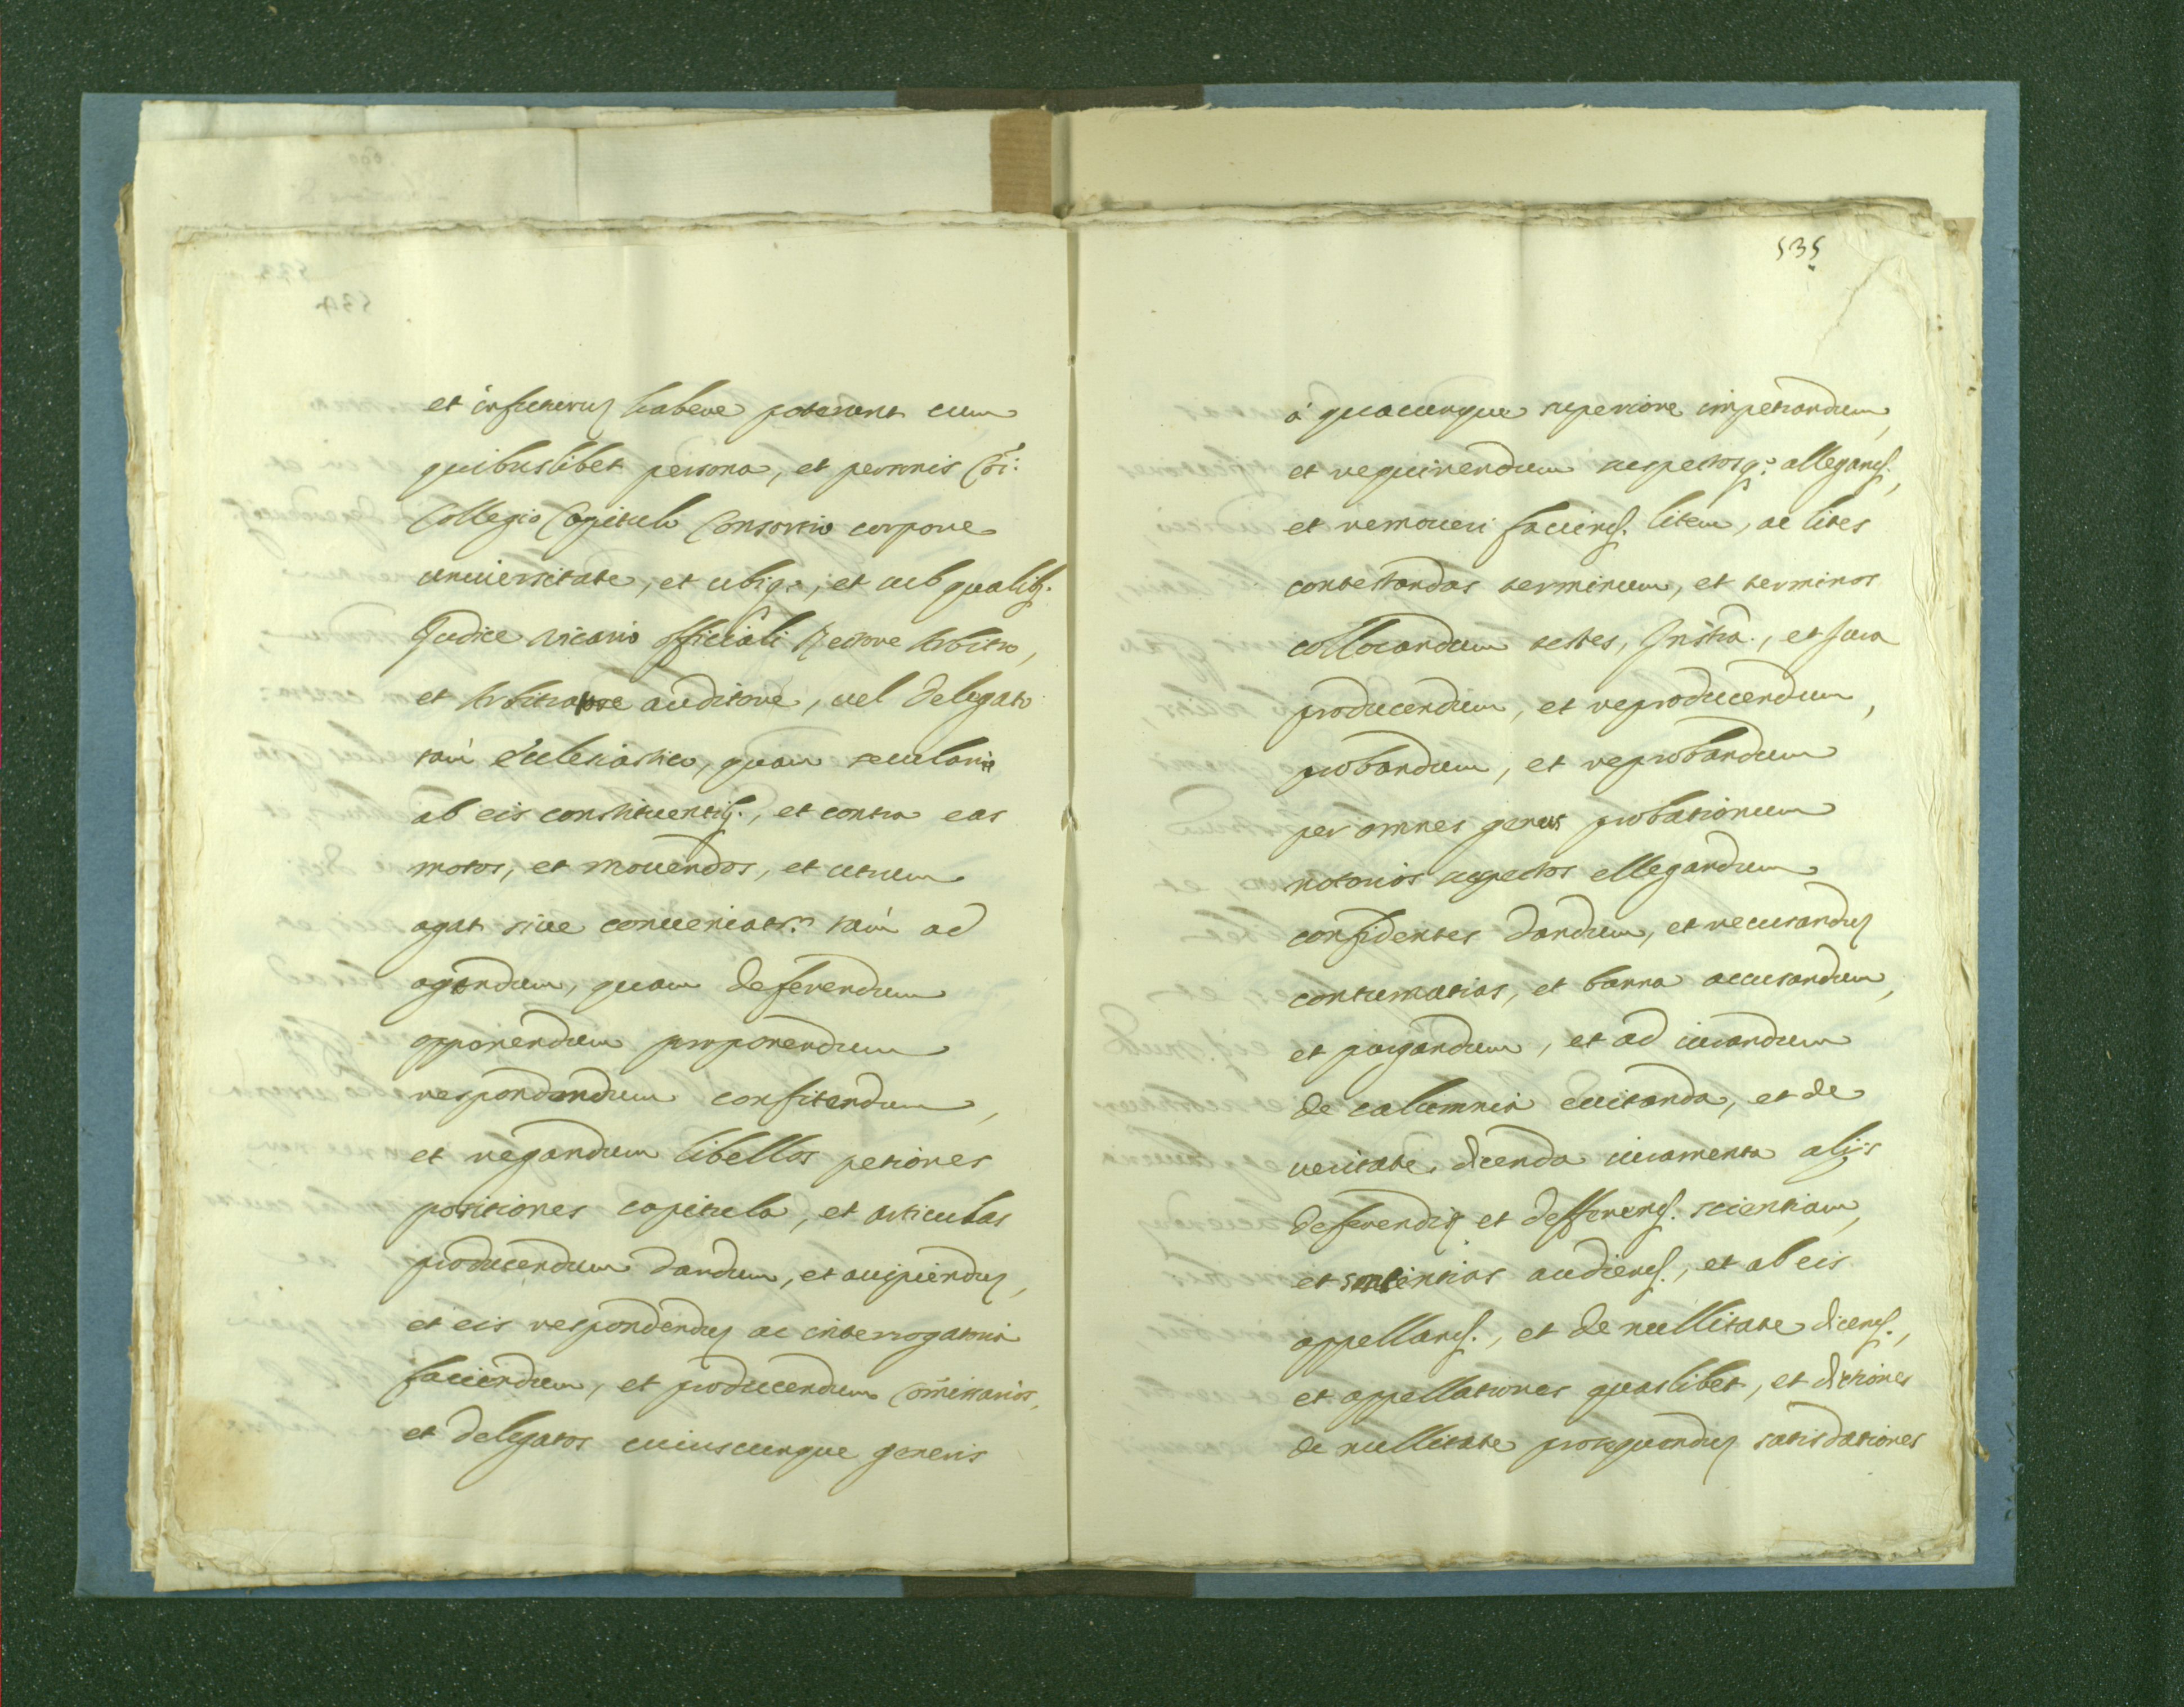 et in futurum habere poterunt cum
quibuslibet persona, et personis Coi:
Collegio Capitulo Consortio corpore
universitate, et ubiq:, et sub qualibs.
Judice vicario officiali Rectore Arbitro,
et Arbitratore auditore, vel delegato
tam Ecclesiastico, quam seculari
ab eis constituentibs., et contra eas
motos, et movendos, et utrum
agat sive conveniatr. tam ad
agendum, quam defendendum
opponendum proponendum
respondendum confitendum,
et negandum libellos petiones
positiones capitula, et articulas
producendum dandum, et accipiendum,
et eis respondendum ac interrogatoria
faciendum, et producendum Comissarios,
et delegatos cuiuscunque generis
535
à quacunque superiore impetrandum,
et requirendum suspectosq: allegand.,
et removeri faciend. litem, ac lites
contestandas terminum, et terminos
collocandum testes, Instra., et Jura
producendum, et reproducendum,
probandum, et reprobandum
per omnes genus probationum
notorios suspectos ellegandum
confidentes dandum, et recusandum
contumatias, et banna accusandum,
et purgandum, et ad iurandum
de calumnia evitanda, et de
veritate dicenda iuramenta alijs
deferendis et defferend. scientiam,
et sententias audiend., et ab eis
appelland., et de nullitate dicend.,
et appellationes quaslibet, et dictiones
de nullitate prosequendum satisdationes